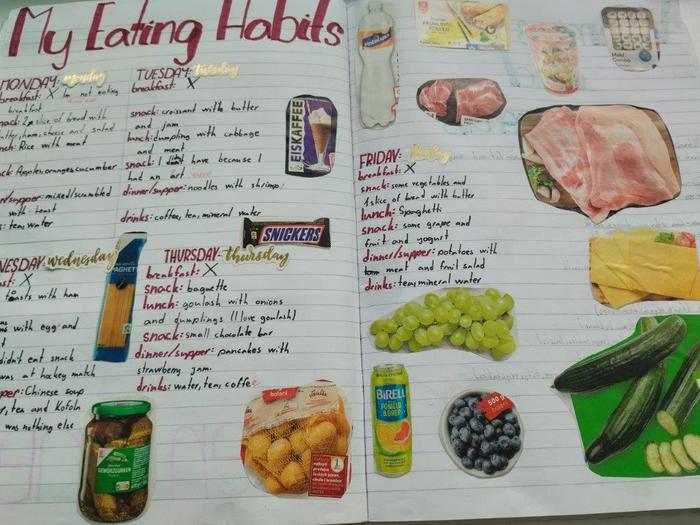 My Eating Habits
MONDAY: monday
breakfast: X I'm not eating
breakfast
snack: 2 slice of bread with
butter, ham, cheese and salad
lunch: Rice with meat
snack: Apples, oranges, cucumber
dinner/supper: mixed/scrambled
with toast
tea, water
TUESDAY: tuesday
breakfast: X
snack: croissant with butter
and jam
lunch: dumpling with cabbage
and meat
snack: I didn't have because I
had an art
dinner/supper: noodles with shrimps
drinks: coffee, tea, mineral water
EISKAFFEE
SNICKERS
WEDNESDAY: wednesday
X
toasts with ham
with egg and
didn't eat snack
was at hockey match
supper: Chinese soup
tea and Kofola
was nothing else
SPAGHETTI
THURSDAY: thursday
breakfast: X
snack: baguette
lunch: goulash with onions
and dumplings (I love goulash)
snack: small chocolate bar
dinner/supper: pancakes with
strawberry jam.
drinks: water, tea, coffee
GEWÜRZGURKEN
balení
FRIDAY: friday
breakfast: X
snack: some vegetables and
1 slice of bread with butter
lunch: Spaghetti
snack: some grape and
fruit and yogurt
dinner/supper: potatoes with
meat and fruit salad
drinks: tea, mineral water
BIRELL
POMELO
& GREP
500 g
balení